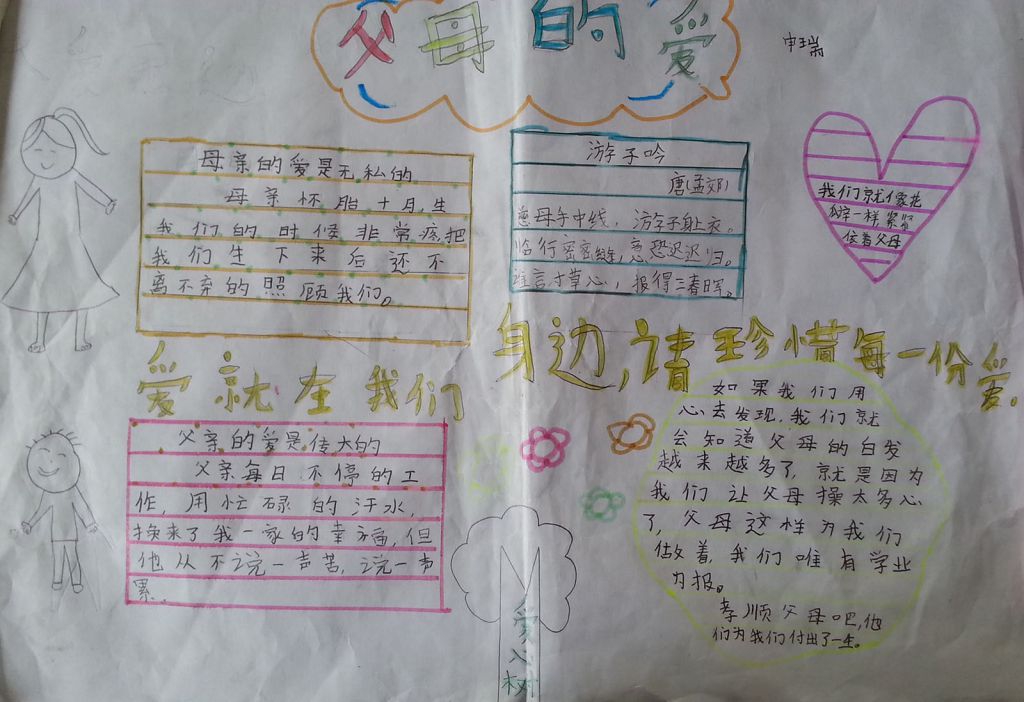 父母的爱
申瑞
母亲的爱是无私的
母亲怀胎十月,生
我们的时候非常疼,把
我们生下来后还不
离不弃的照顾我们。
游子吟
唐(孟郊)
慈母手中线,游子身上衣。
临行密密缝,意恐迟迟归。
谁言寸草心,报得三春晖。
我们就像花
和字一样紧紧
依着父母
爱就在我们身边,请珍惜每一份爱。
父亲的爱是伟大的
父亲每日不停的工
作,用忙碌的汗水,
换来了我一家的幸福,但
他从不说一声苦,说一声
累。
如果我们用
心去发现,我们就
会知道父母的白发
越来越多了,就是因为
我们让父母操太多心
了,父母这样为我们
做着,我们唯有学业
为报。
孝顺父母吧,他
们为我们付出了一生。
爱心树